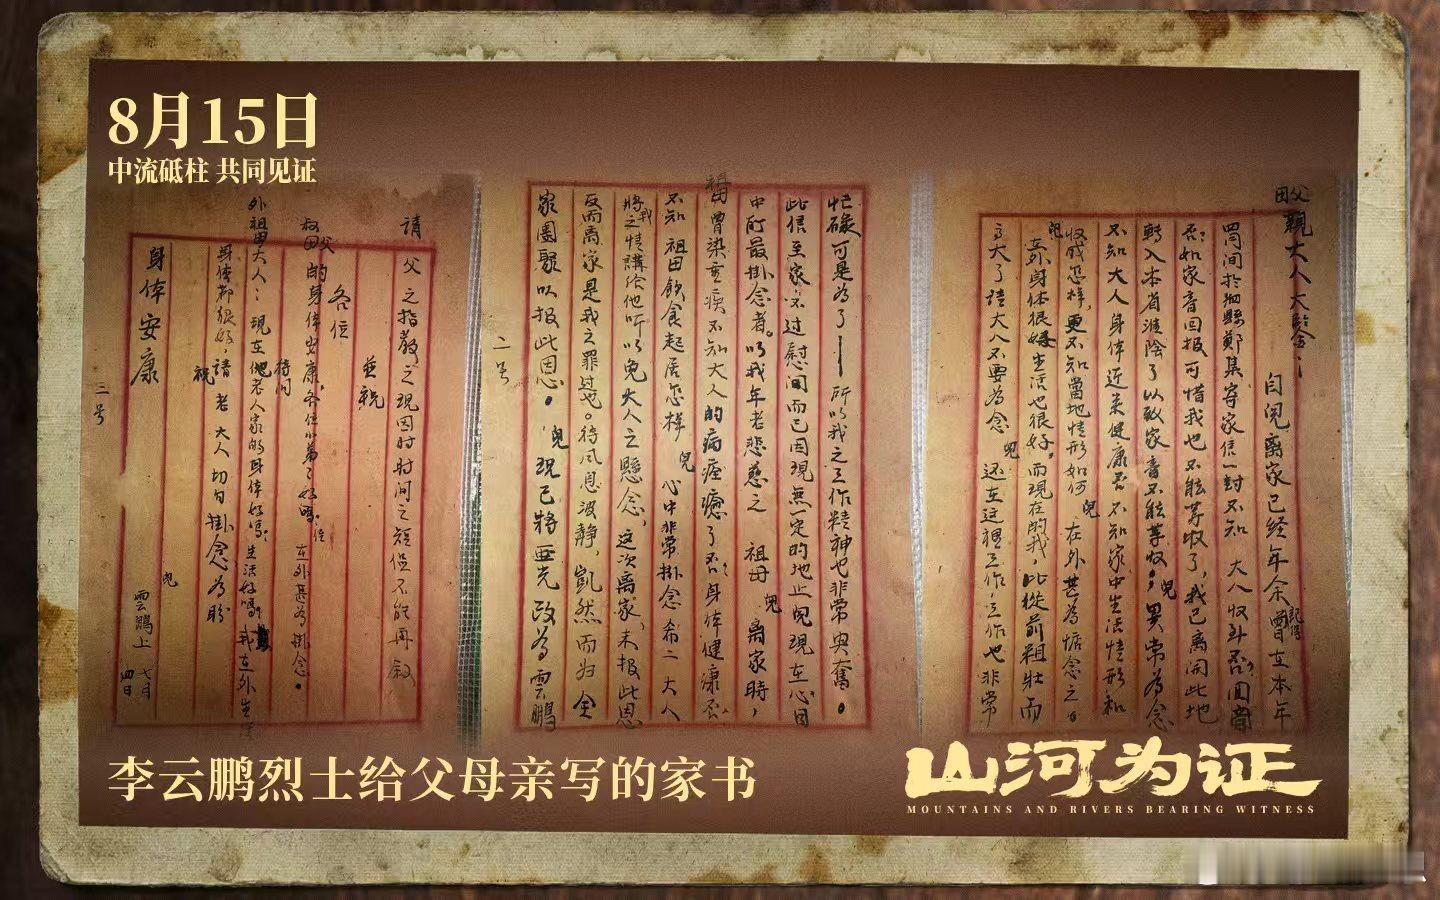 8月15日
中流砥柱 共同见证
父母親大人大鑒：
自兒离家已經年余 記得曾在本年
間於泗縣鄭集寄家信一封不知 大人收到否？
否如家音回报可惜我也不能等收了，我已离開此地
轉入本省淮陰了以致家音不能等收，兒異常為念
不知大人身体近来健康否 不知家中生活情形和
收成怎样，更不知當地情形如何 兒在外甚為惦念之
兒在外身体很好 生活也很好。而現在的我，比從前粗壯而
高大了 請大人不要為念 兒還在這裡工作，工作也非常
忙碌可是為了——所以我之工作精神也非常興奮。
此信至家不过慰问而已因現無一定的地止兒現在心因
中所最掛念者。以我年老悲慈之 祖母 兒离家時，
祖母曾染重疾不知大人的病痊癒了否，身体健康否
不知 祖母飲食起居怎样 兒心中非常掛念希二大人
將我之情講給他听以免大人之懸念，這次离家，未报此恩
反而离家是我之罪过也。待风息波静，凱然而归 全
家團聚以报此恩。 兒現已將垂光改為雲鵬
二号
請 父之指教之現因时时间之短促不能再敍
並祝
各位
叔父母的身体安康，各位小弟弟好嗎 侄在外甚為掛念。
待问
外祖母大人：現在他老人家的身体好嗎，生活好嗎？我在外生活
身体都很好，請老大人切勿掛念為盼
祝
身体安康
兒雲鵬上 七月四日
三号
李云鹏烈士给父母亲写的家书
山河为证
MOUNTAINS AND RIVERS BEARING WITNESS